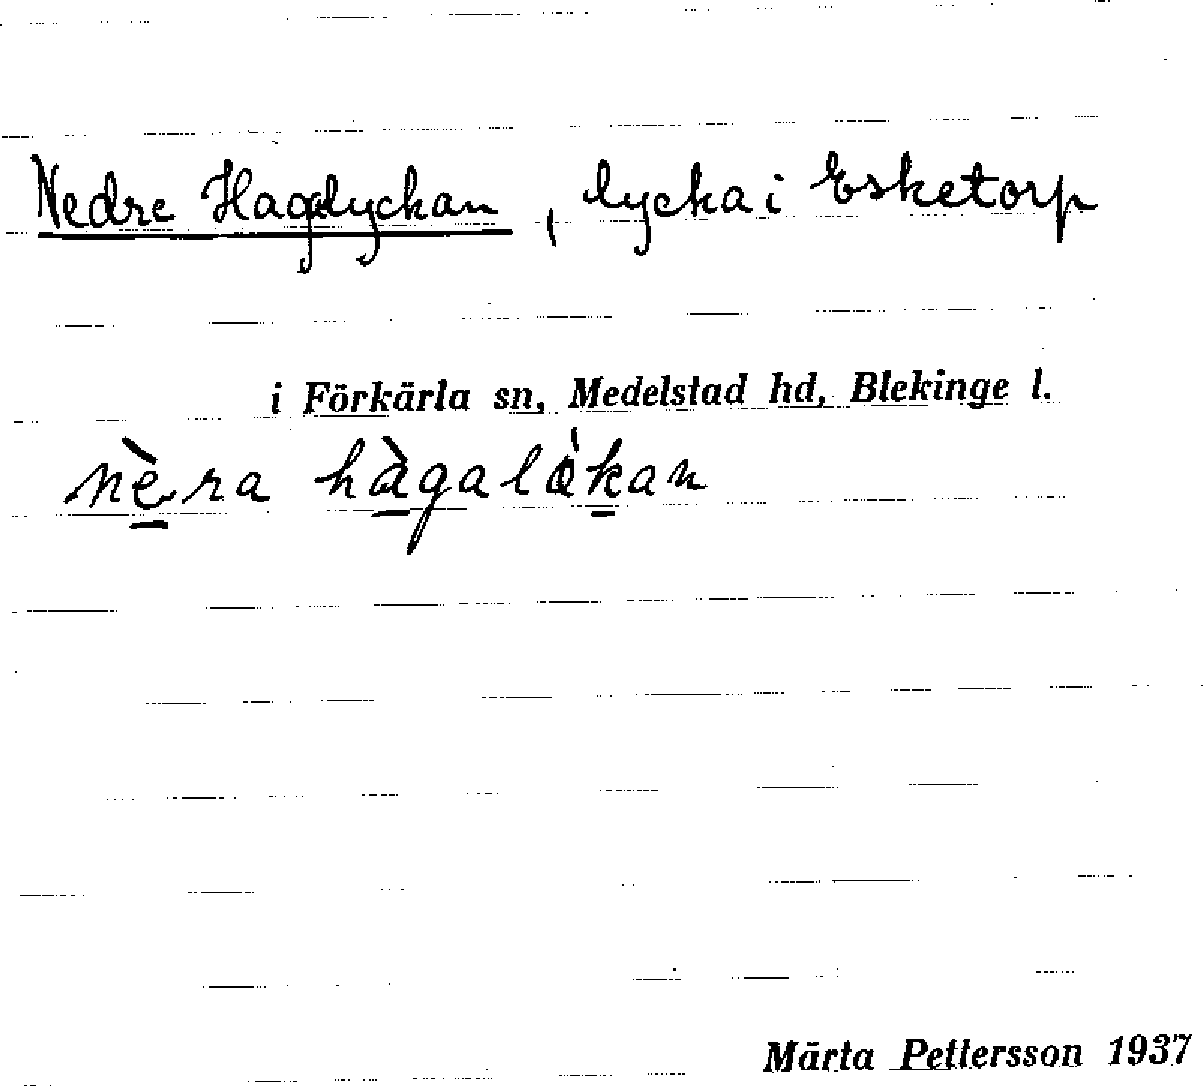 Nedre Hagalyckan, lycka i Esketorp
i Förkärla sn, Medelstad hd, Blekinge l.
nèra hàgalòkan
Märta Pettersson 1937